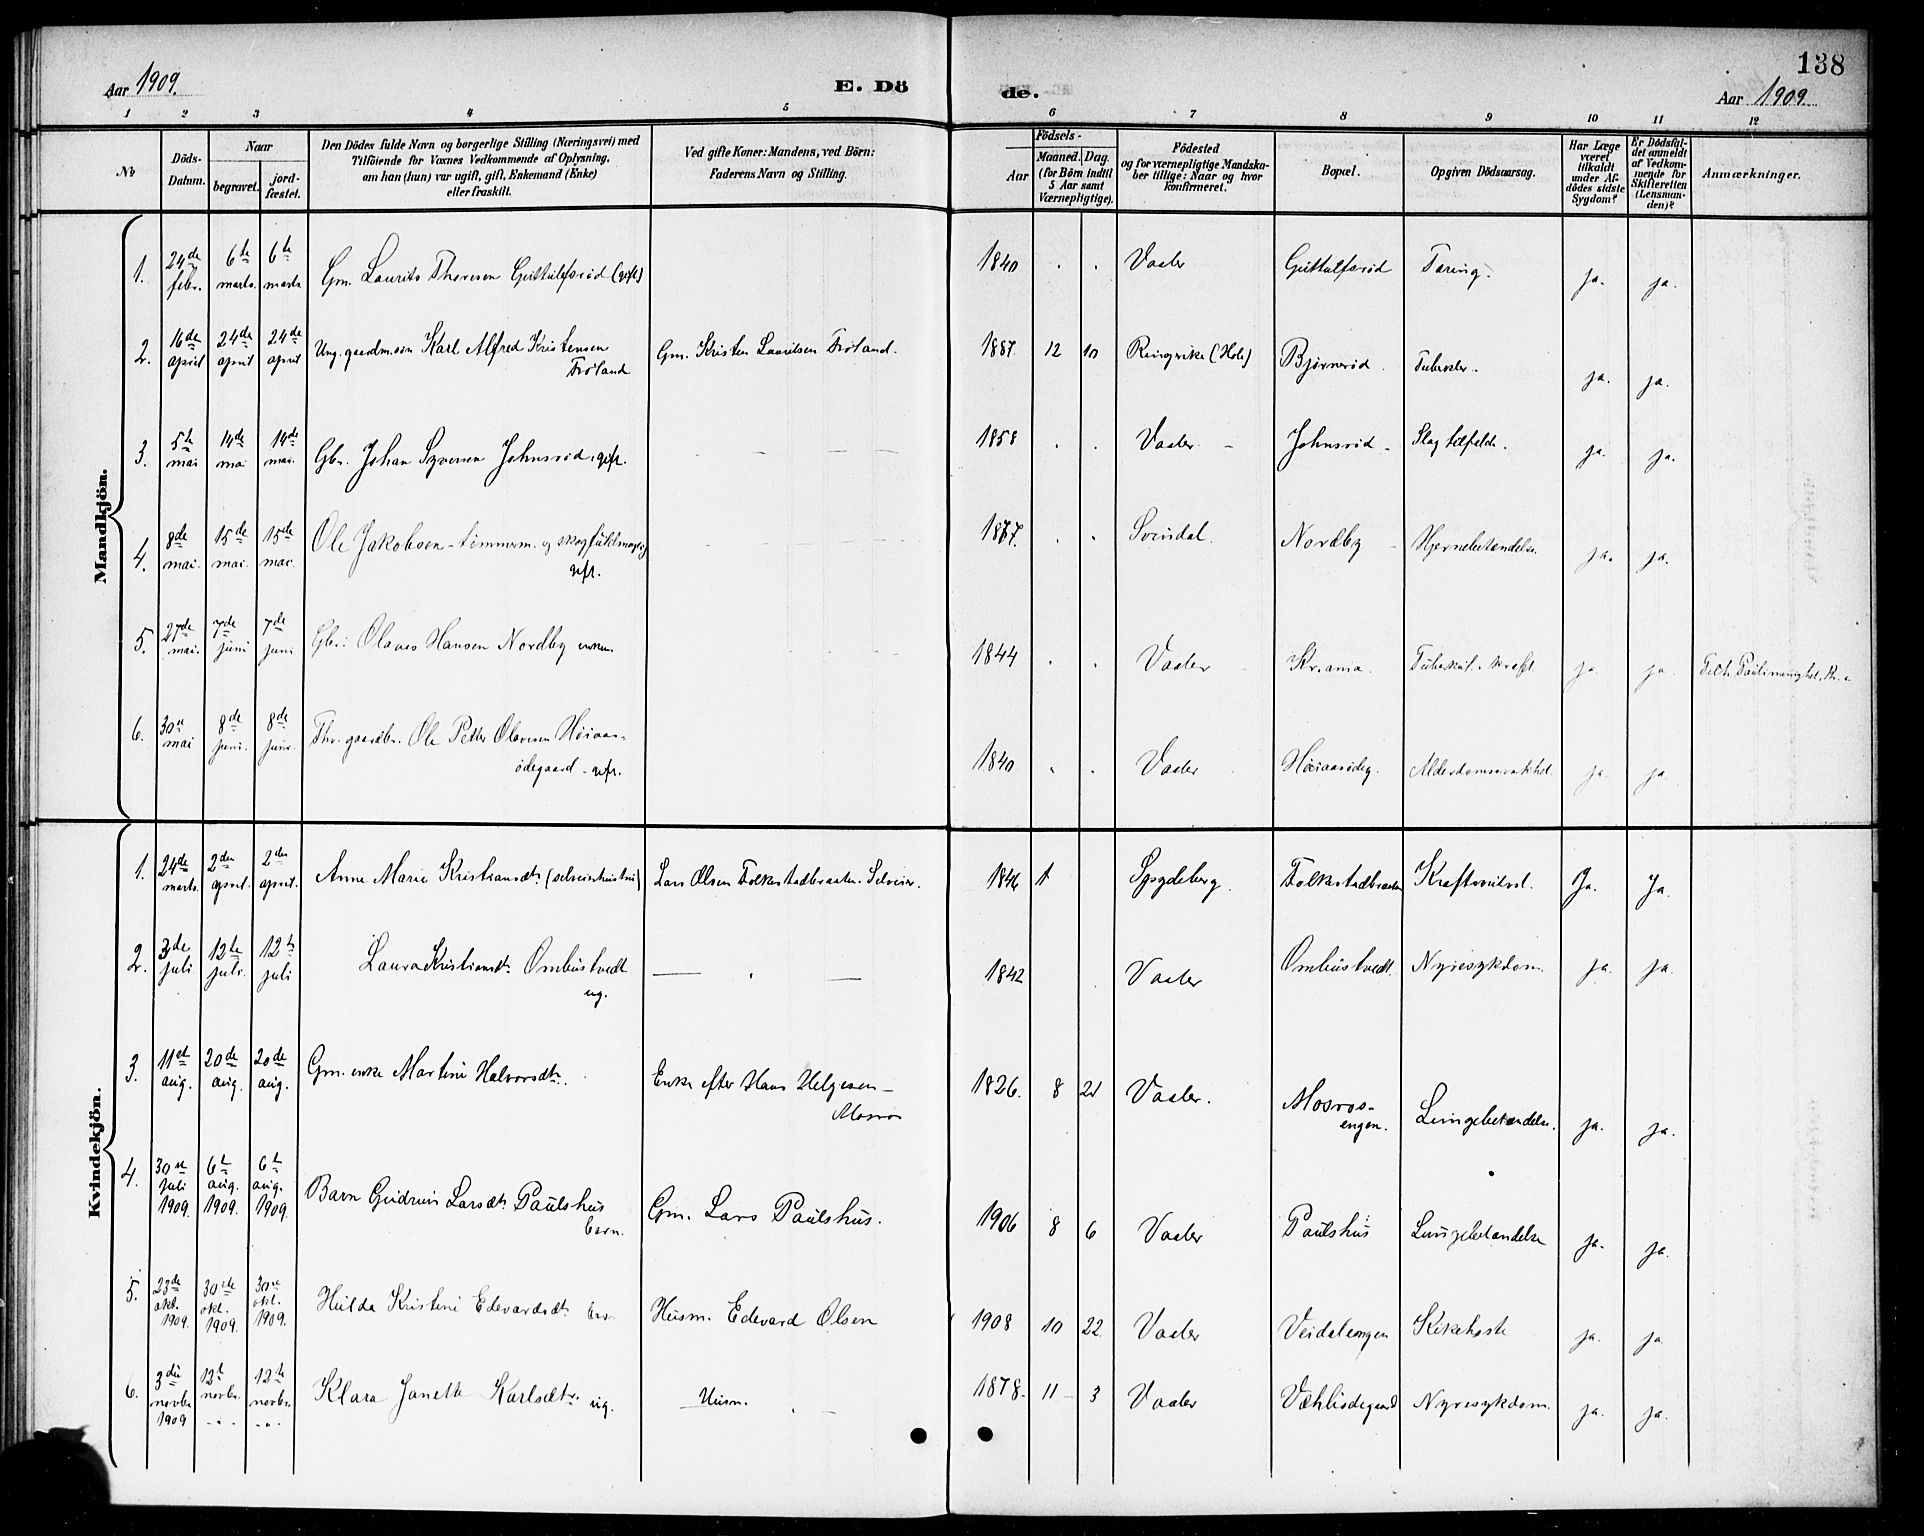 138
Aar 1909.
E. Dö
de.
Aar 1909
1 2 3 4 5 6 7 8 9 10 11 12
No
Döds-
Datum.
Naar
begravet.
jord-
fæstet.
Den Dödes fulde Navn og borgerlige Stilling (Næringsvei) med
Tilföiende for Voxnes Vedkommende af Oplysning,
om han (hun) var ugift, gift, Enkemand (Enke)
eller fraskilt.
Ved gifte Koner: Mandens, ved Börn:
Faderens Navn og Stilling.
Födsels-
Aar
Maaned. Dag.
(for Börn indtil
5 Aar samt
Værnepligtige).
Födested
og for værnepligtige Mandska-
ber tillige: Naar og hvor
konfirmeret.
Bopæl.
Opgiven Dödsaarsag.
Har Læge
været
tilkaldt
under Af-
dödes sidste
Sygdom?
Er Dödsfal-
det anmeldt
af Vedkom-
mende for
Skifteretten
(Lensman-
den)?
Anmærkninger.
Mandkjön.
1. 24de febr. 6te marts. 6te marts Gm. Laurits Thoresen Guttulfsrød (gift) 1840 Vaaler Guttulfsrød Tæring. ja. ja.
2. 16de april 24de april 24de april Ung. gaardm.søn Karl Alfred Kristensen
Frøland Gm. Kristen Lauritsen Frøland. 1887. 12 10 Ringerike (Hole) Bjørnerød. Tuberkler. ja. ja.
3. 5te mai 14de mai 14de mai. Gbr. Johan Syversen Johnsrød, gift. 1858 Vaaler Johnsrød Slagtilfælde. ja. ja.
4. 8de mai. 15de mai. 15de mai. Ole Jakobsen - tømmerm. og skogfuldmægtig
gift. 1867. Svindal. Nordby Hjernebetændelse. ja. ja.
5. 27de mai. 7de juni 7de juni Gbr. Olaves Hansen Nordby enkem. 1844 Vaaler Kr.ania Tuberkul. kræft ja ja.
6. 30te mai 8de juni. 8de juni. Fhv. gaardbr. Ole Petter Olavesen Høiaas-
ødegaard - gift. 1840 Vaaler Høiaasødeg. Alderdomssvakhed. ja. ja.
Kvindekjön.
1. 24de marts. 2den april. 2den april. Anne Marie Kristiansdtr (selveierhustru) Lars Olsen Folkestadbraaten. Selveier. 1846 Spydeberg Folkestadbraaten Kræftsvulst. Ja. Ja.
2. 3de juli 12te juli. 12te juli Laura Kristiansdtr. Ombustvedt
ug. 1842 Vaaler Ombustvedt. Nyresykdom. ja. ja.
3. 11te aug. 20de aug. 20de aug. Gm. enke Martine Halvorsdtr. Enke efter Hans Helgesen
Mosros 1826. 8 21 Vaaler. Mosros-
engen. Lungebetændelse. ja. ja.
4. 30te juli 1909. 6te aug. 1909. 6te aug. 1909. Barn Gudrun Larsdtr. Paulshus
barn. Gm. Lars Paulshus. 1906 8 6 Vaaler Paulshus Lungebetændelse ja. ja.
5. 23de okt. 1909. 30te okt. 1909. 30te okt. 1909. Hulda Kristine Edevardsdtr. barn Husm. Edevard Olsen 1908 10 22. Vaaler Veidalengen Kikehoste ja. ja.
6. 3die novbr 1909 12te novbr. 12te novbr. Klara Janette Karlsdtr. ug. Husm. 1878. 11 3 Vaaler Nyresykdom. ja. ja.